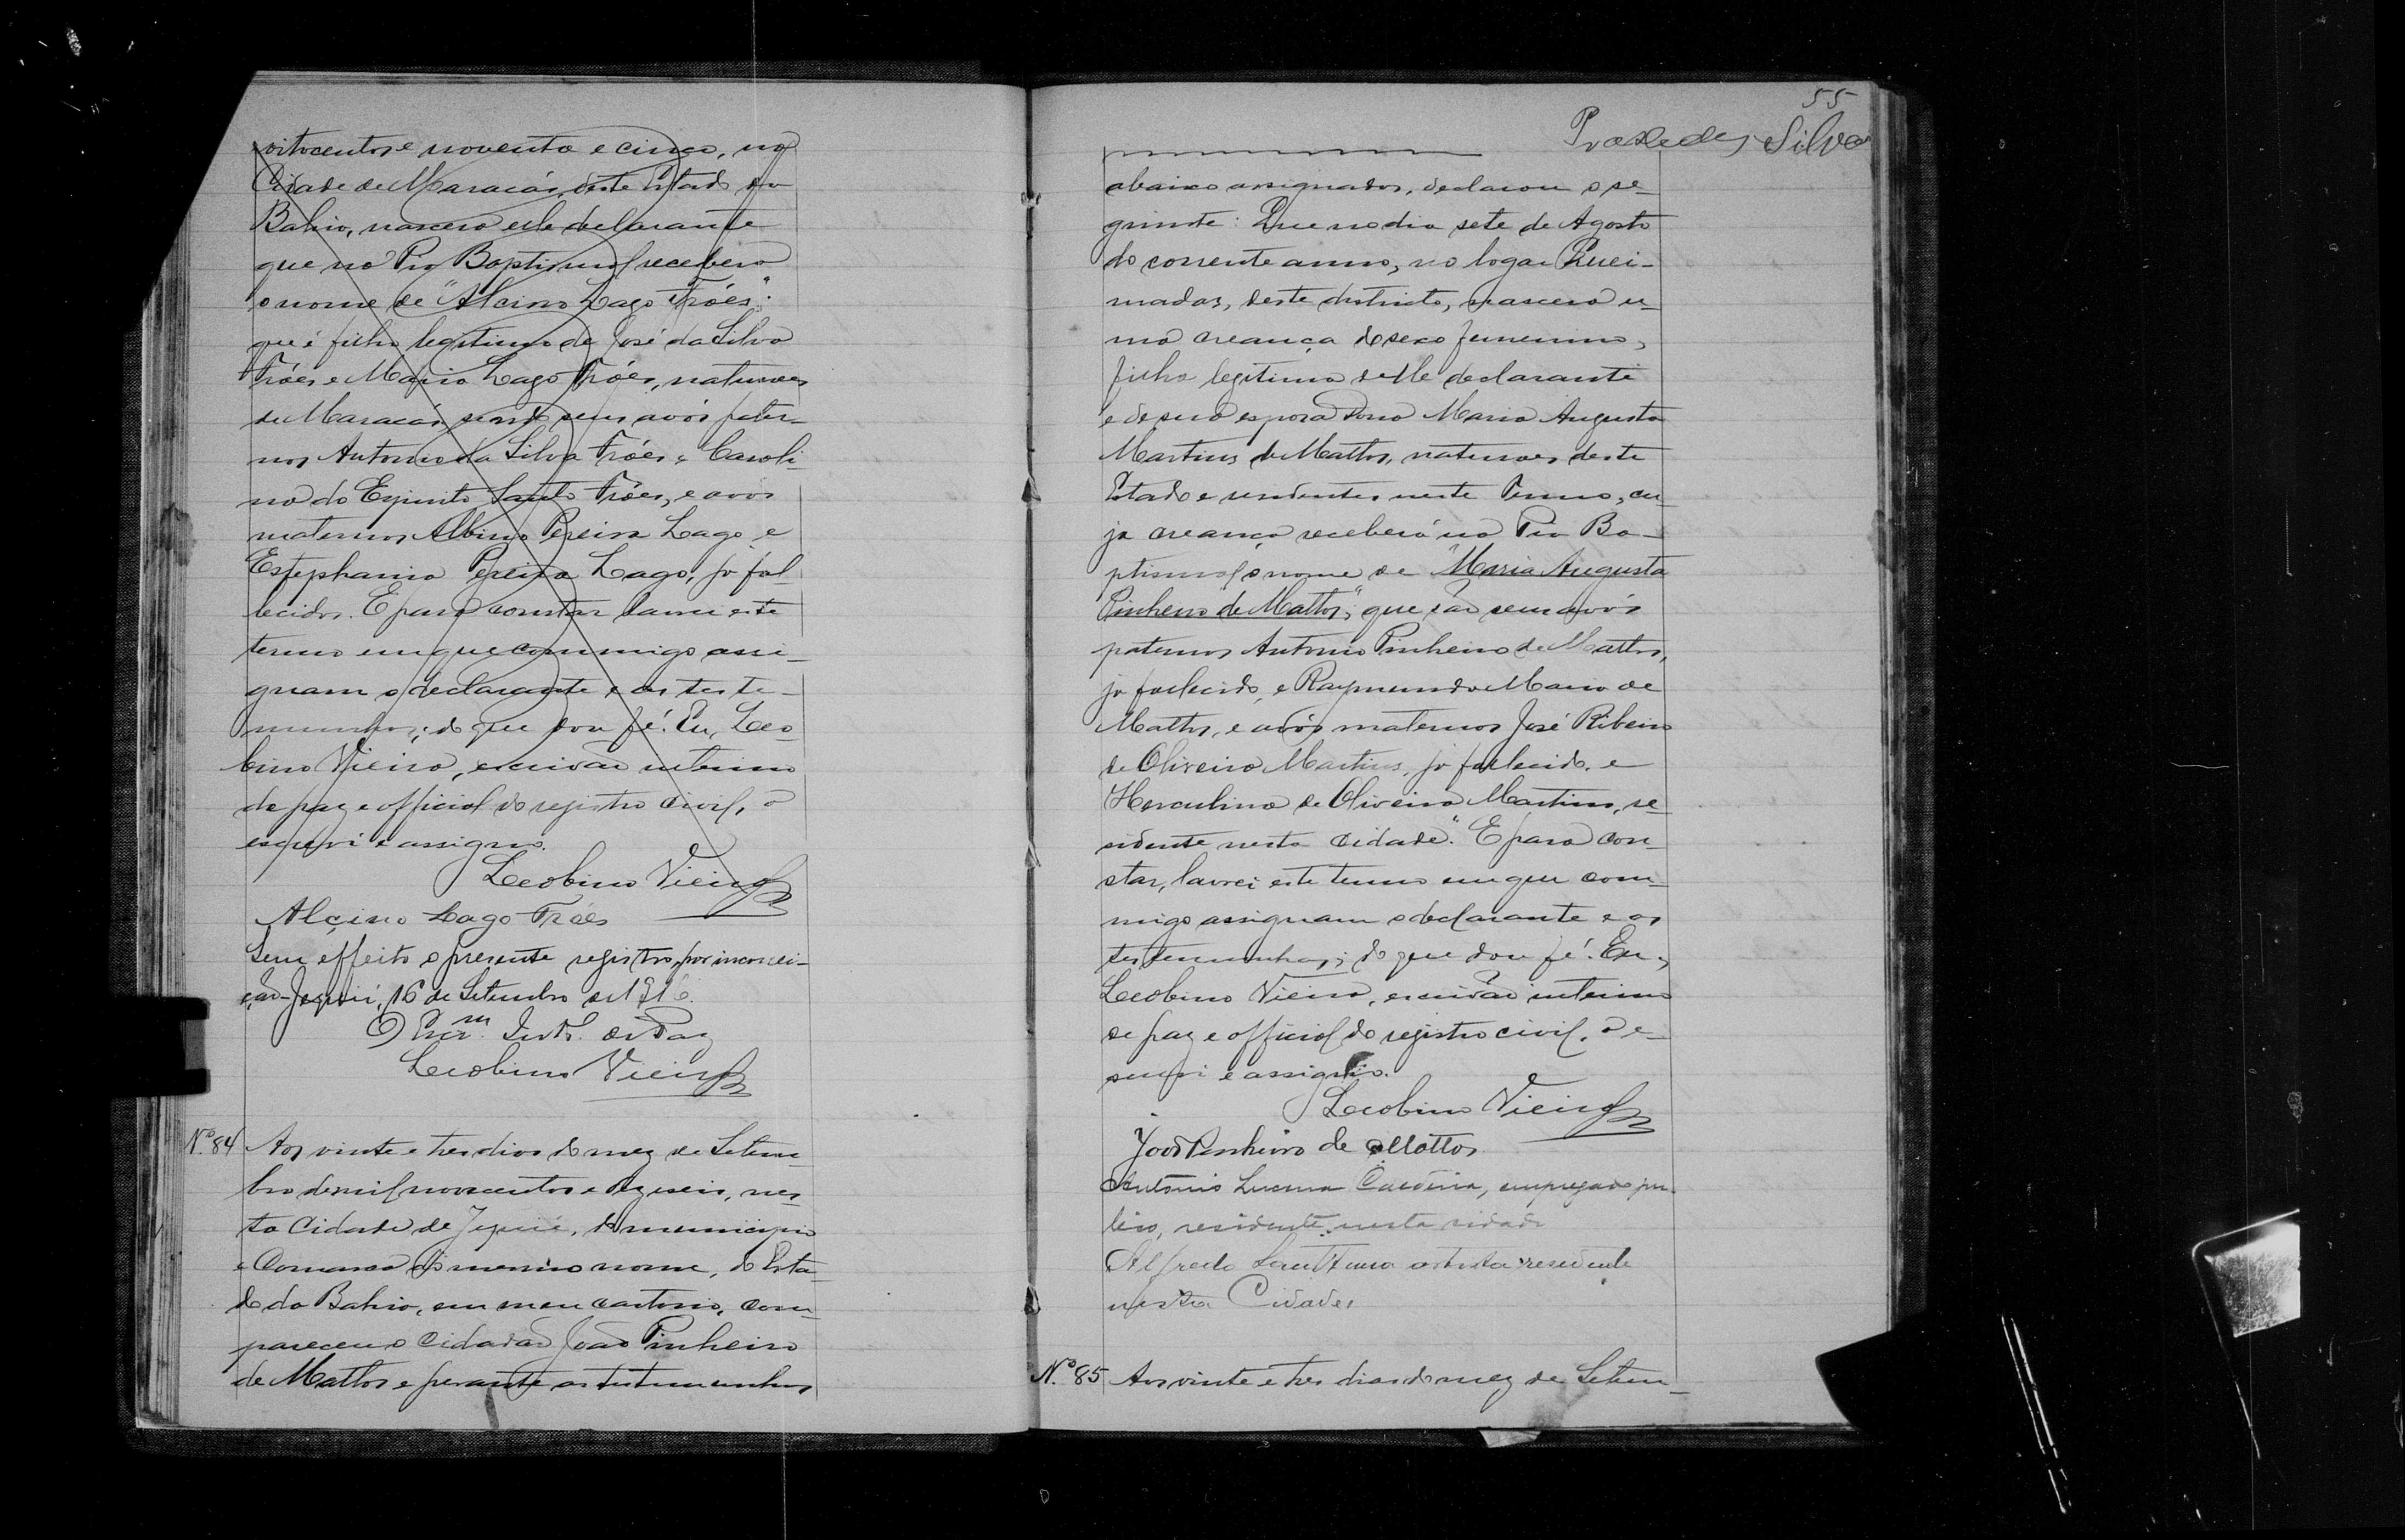 oitocentos e noventa e cinco, na
Cidade de Maracás, deste Estado da
Bahia, nascera elle declarante
que na Pia Baptismal recebera
o nome de "Alcino Lago Fróes":
que é filho legitimo de José da Silva
Fróes e Maria Lago Fróes, naturaes
de Maracás, sendo seus avós pater-
nos Antonio da Silva Fróes e Caroli-
na do Espirito Santo Fróes, e avós
maternos Albino Pereira Lago e
Estephania Pereira Lago, já fal-
lecidos. E para constar lavrei este
termo em que commigo assi-
gnam o declarante e as teste-
munhas; do que dou fé. Eu, Leo-
bino Vieira, escrivão interino
de paz e official do registro civil, o
escrevi e assigno.
Leobino Vieira
Alcino Lago Fróes
Sem effeito o presente registro, por incorrei-
ção. Jequié, 16 de Setembro de 1916.
O Escr.m Int.º de Paz
Leobino Vieira
Nº 84 Aos vinte e tres dias do mez de Setem-
bro de mil novecentos e dezeseis, nes-
ta Cidade de Jequié, do municipio
e Comarca do mesmo nome, do Esta-
do da Bahia, em meu cartorio, com-
pareceu o cidadão João Pinheiro
de Mattos e perante as testemunhas
55
Praxedes Silva
abaixo assignados, declarou o se-
guinte: Que no dia sete de Agosto
do corrente anno, no logar Quei-
madas, deste districto, nascera u-
ma creança do sexo femenino,
filha legitima delle declarante
e de sua esposa Dona Maria Augusta
Martins de Mattos, naturaes deste
Estado e residentes neste Termo, cu-
ja creança receberá na Pia Ba-
ptismal o nome de "Maria Augusta
Pinheiro de Mattos"; que são seus avós
paternos Antonio Pinheiro de Mattos,
já fallecido, e Raymunda Maria de
Mattos, e avós maternos José Ribeiro
de Oliveira Martins, já fallecido, e
Herculina de Oliveira Martins, re-
sidente nesta cidade". E para con-
star, lavrei este termo em que com-
migo assignam o declarante e as
testemunhas; do que dou fé. Eu,
Leobino Vieira, escrivão interino
de paz e official do registro civil, o e-
screvi e assigno.
Leobino Vieira
João Pinheiro de Mattos
Antonio Lucena, empregado pu-
blico, residente nesta cidade
Alfredo Sant'Anna artista residente
nesta Cidade.
Nº 85 Aos vinte e tres dias do mez de Setem-